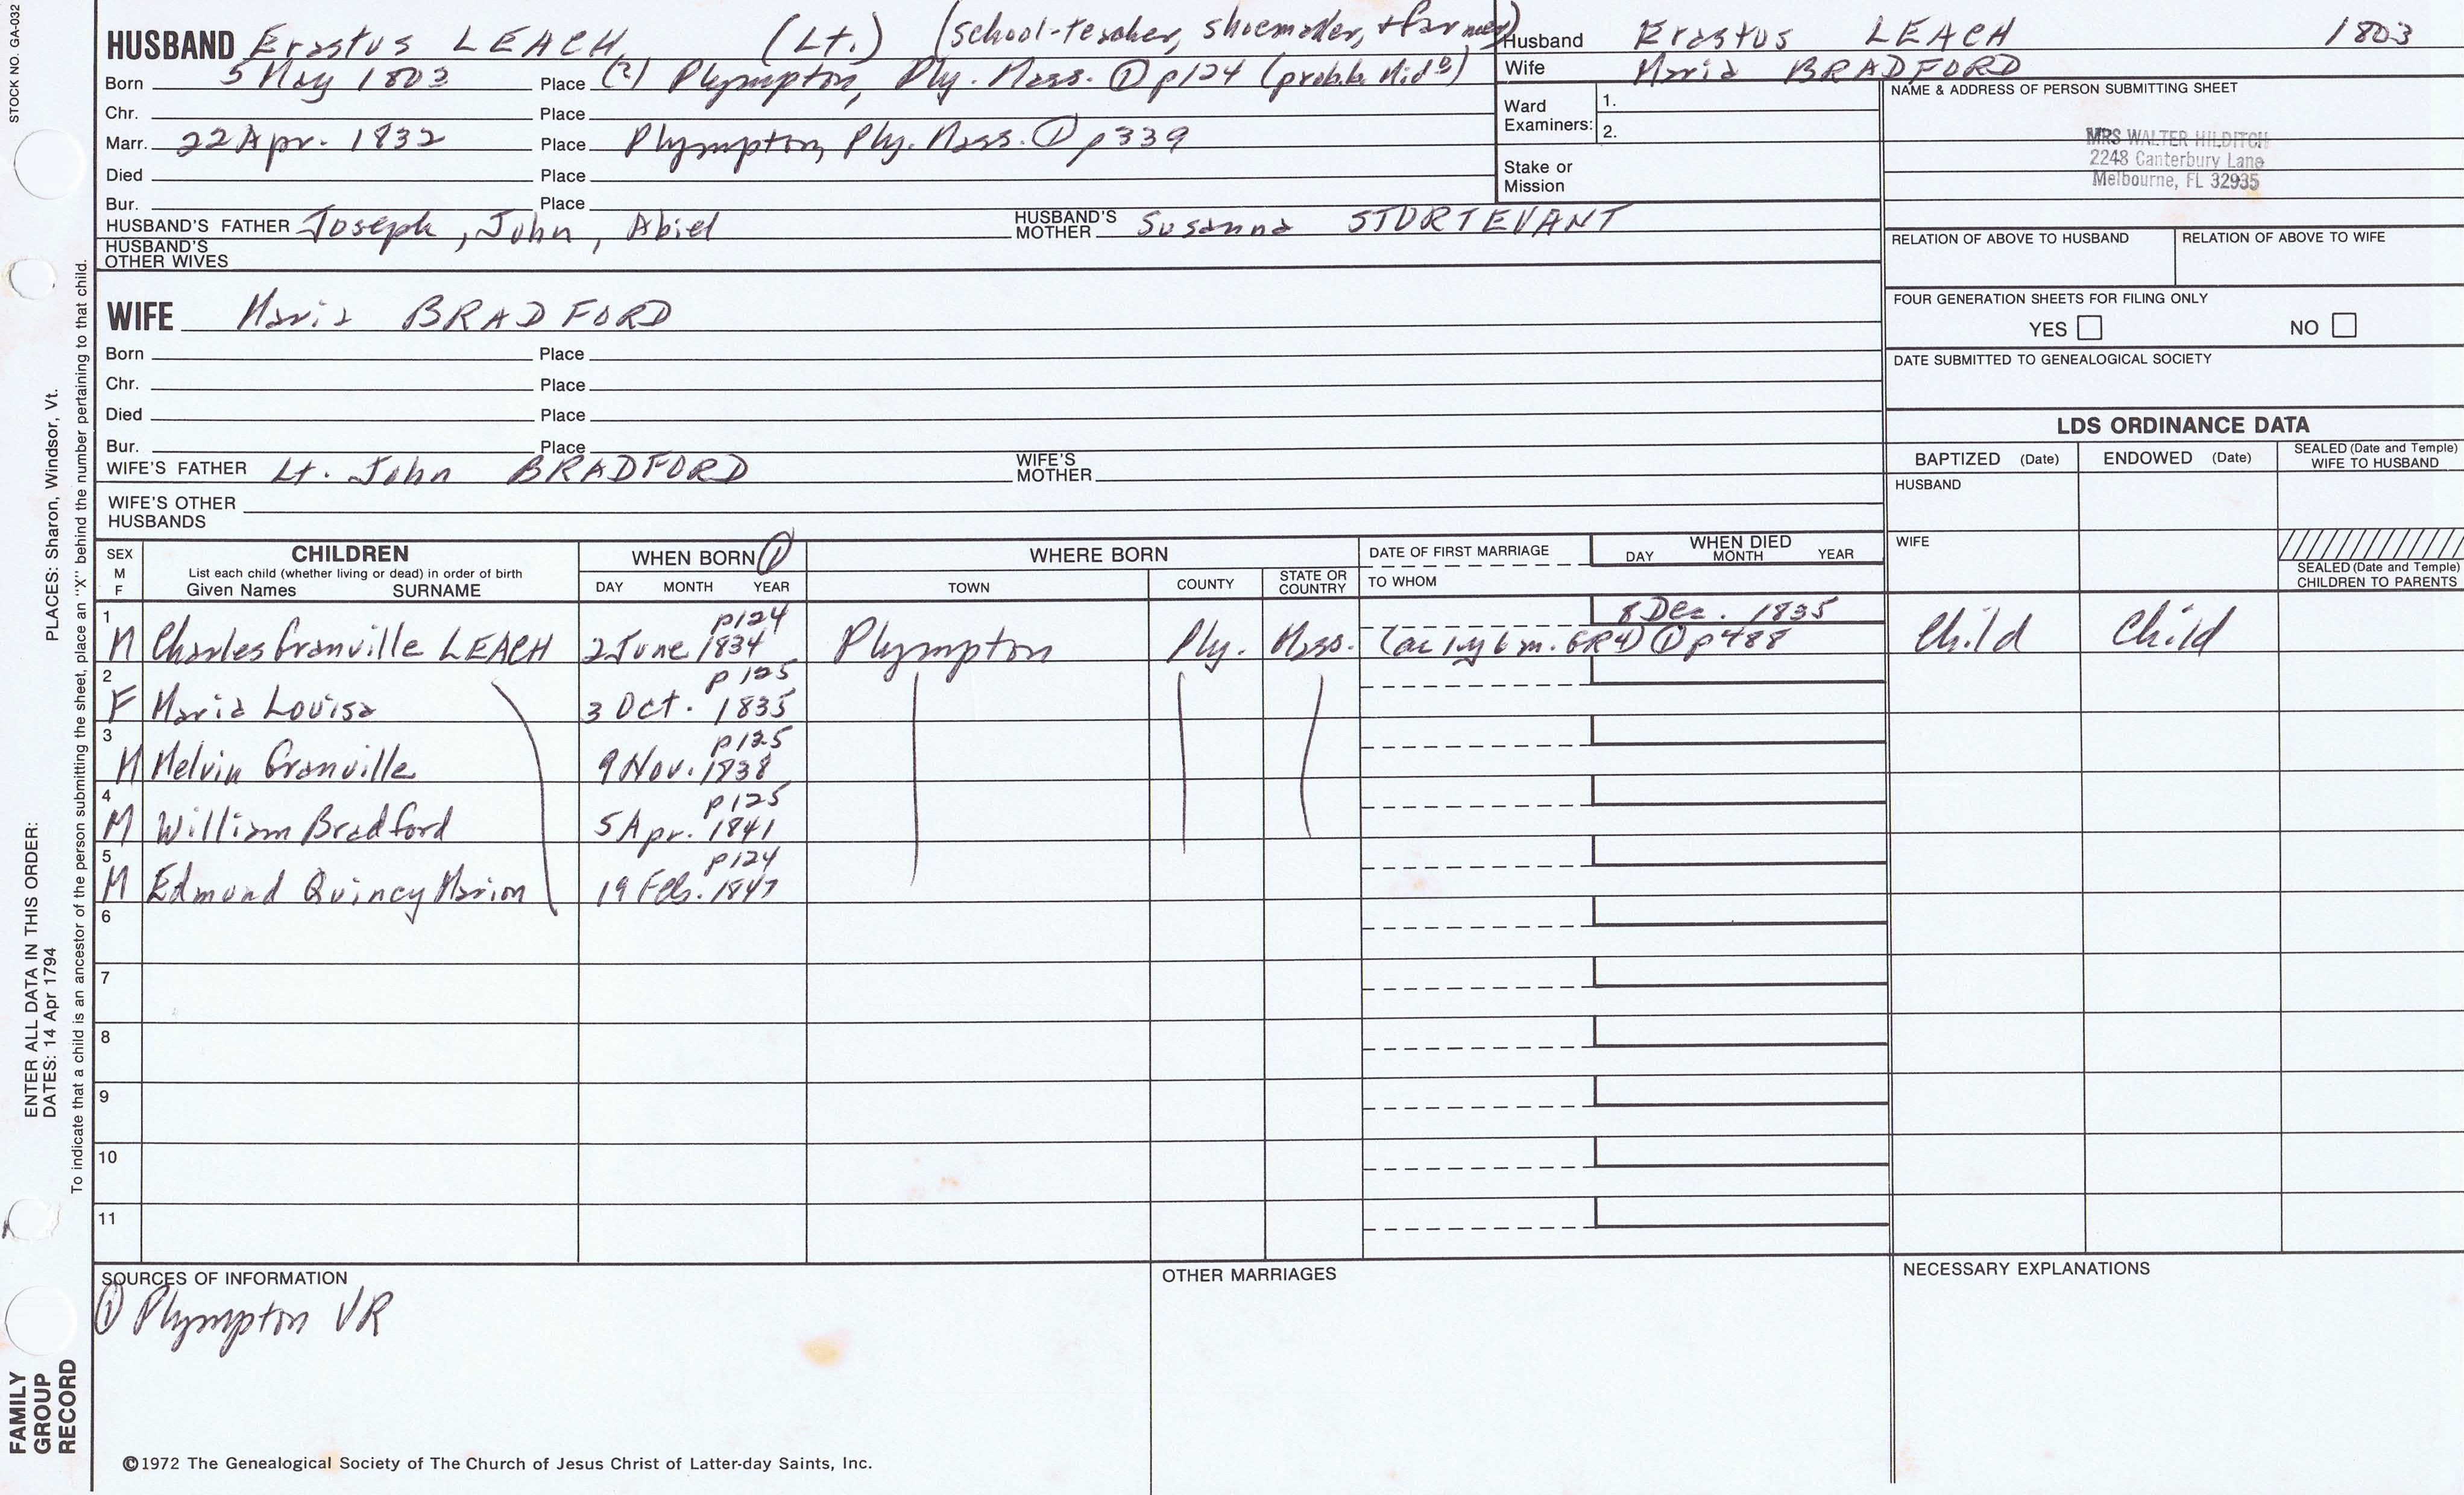 STOCK NO. GA-032
HUSBAND Erastus LEACH (Lt.) (school-teacher, shoemaker, + farmer)
Born 5 May 1803 Place (?) Plympton, Ply. Mass. ① p124 (probab. Mid ᴮ)
Chr. Place
Marr. 22 Apr. 1832 Place Plympton, Ply. Mass. ① p339
Died Place
Bur. Place
HUSBAND'S FATHER Joseph, John, Abiel HUSBAND'S MOTHER Susanna STURTEVANT
HUSBAND'S OTHER WIVES
Husband Erastus LEACH 1803
Wife Maria BRADFORD
Ward Examiners: 1.
2.
Stake or Mission
NAME & ADDRESS OF PERSON SUBMITTING SHEET
MRS WALTER HILDITCH
2248 Canterbury Lane
Melbourne, FL 32935
RELATION OF ABOVE TO HUSBAND RELATION OF ABOVE TO WIFE
FOUR GENERATION SHEETS FOR FILING ONLY
YES NO
DATE SUBMITTED TO GENEALOGICAL SOCIETY
WIFE Maria BRADFORD
Born Place
Chr. Place
Died Place
Bur. Place
WIFE'S FATHER Lt. John BRADFORD WIFE'S MOTHER
WIFE'S OTHER HUSBANDS
LDS ORDINANCE DATA
BAPTIZED (Date) ENDOWED (Date) SEALED (Date and Temple) WIFE TO HUSBAND
HUSBAND
WIFE
SEALED (Date and Temple) CHILDREN TO PARENTS
SEX M F CHILDREN WHEN BORN ① WHERE BORN DATE OF FIRST MARRIAGE WHEN DIED
List each child (whether living or dead) in order of birth DAY MONTH YEAR
Given Names SURNAME DAY MONTH YEAR TOWN COUNTY STATE OR COUNTRY TO WHOM
1 p124 8 Dec. 1835
M Charles Granville LEACH 2 June 1834 Plympton Ply. Mass. (ae 1 y 6 m. GR4) ① p488 Child Child
2 p125
F Maria Louisa 3 Oct. 1835
3 p125
M Melvin Granville 9 Nov. 1838
4 p125
M William Bradford 5 Apr. 1841
5 p124
M Edmond Quincy Marion 19 Feb. 1847
6
7
8
9
10
11
SOURCES OF INFORMATION OTHER MARRIAGES NECESSARY EXPLANATIONS
① Plympton VR
©1972 The Genealogical Society of The Church of Jesus Christ of Latter-day Saints, Inc.
ENTER ALL DATA IN THIS ORDER: PLACES: Sharon, Windsor, Vt.
DATES: 14 Apr 1794
To indicate that a child is an ancestor of the person submitting the sheet, place an "X" behind the number pertaining to that child.
FAMILY
GROUP
RECORD